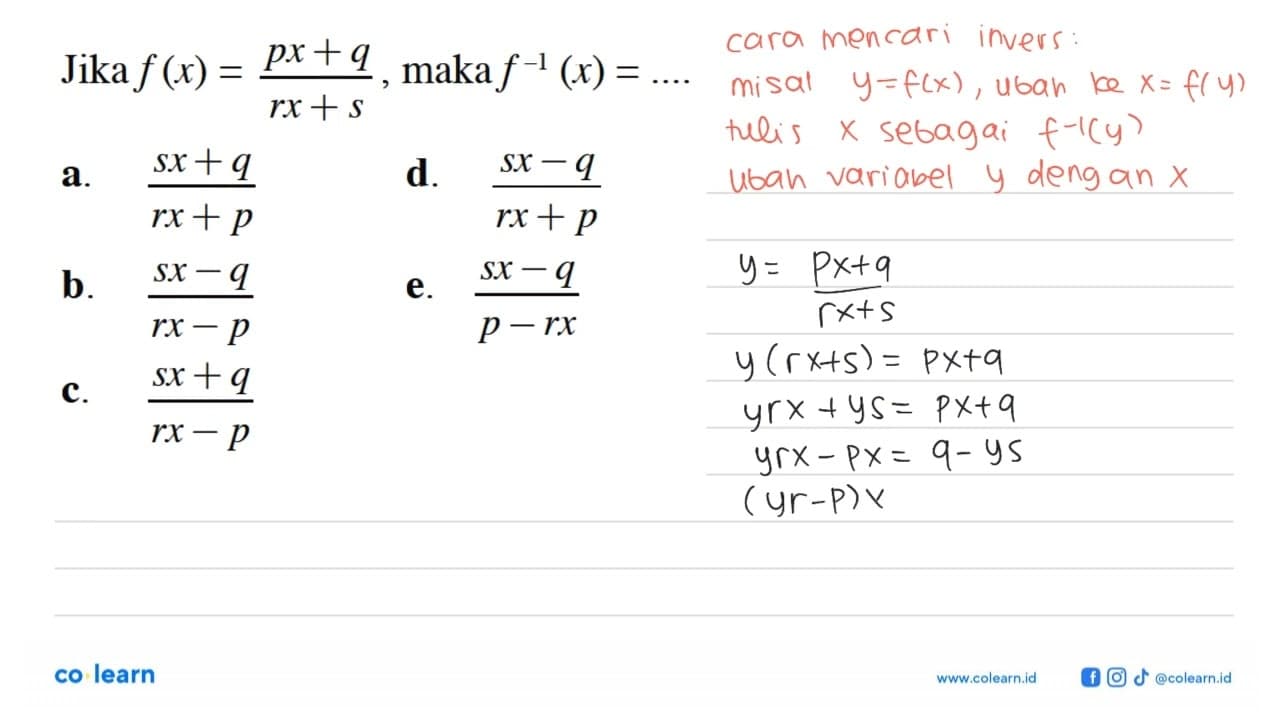 Jika f (x) = px + q / rx + s , maka f⁻¹ (x) = ....
a. sx + q / rx + p
b. sx − q / rx − p
c. sx + q / rx − p
d. sx − q / rx + p
e. sx − q / p − rx
cara mencari invers:
misal y=f(x), ubah ke x= f(y)
tulis x sebagai f-1(y)
ubah variabel y dengan x
y = px+q / rx+s
y (rx+s) = px+q
yrx + ys = px+q
yrx − px = q − ys
(yr−p)x
co learn
www.colearn.id
@colearn.id